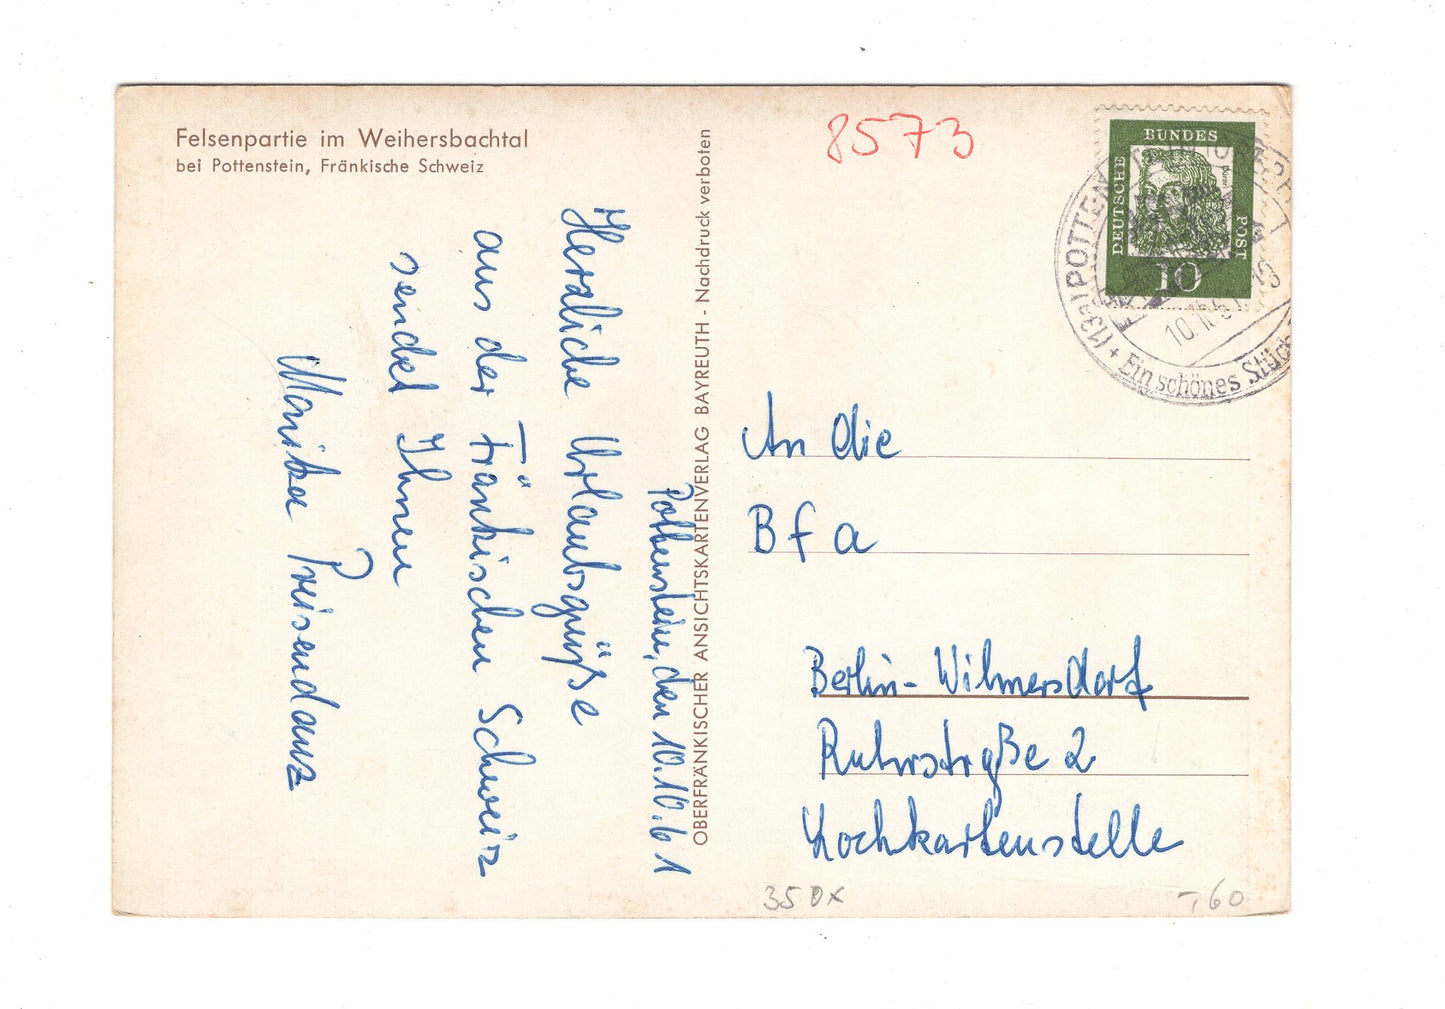 Felsenpartie im Weihersbachtal
bei Pottenstein, Fränkische Schweiz
Pottenstein, den 10.10.61
Herzliche Urlaubsgrüße
aus der Fränkischen Schweiz
sendet Ihnen
Monika Preisendanz
OBERFRÄNKISCHER ANSICHTSKARTENVERLAG BAYREUTH - Nachdruck verboten
8573
DEUTSCHE
BUNDES
POST
Dürer
10
(13a) POTTEN
10.10.61
+ Ein schönes Stück
An die
BfA
Berlin-Wilmersdorf
Ruhrstraße 2
Lochkartenstelle
350x
-,60